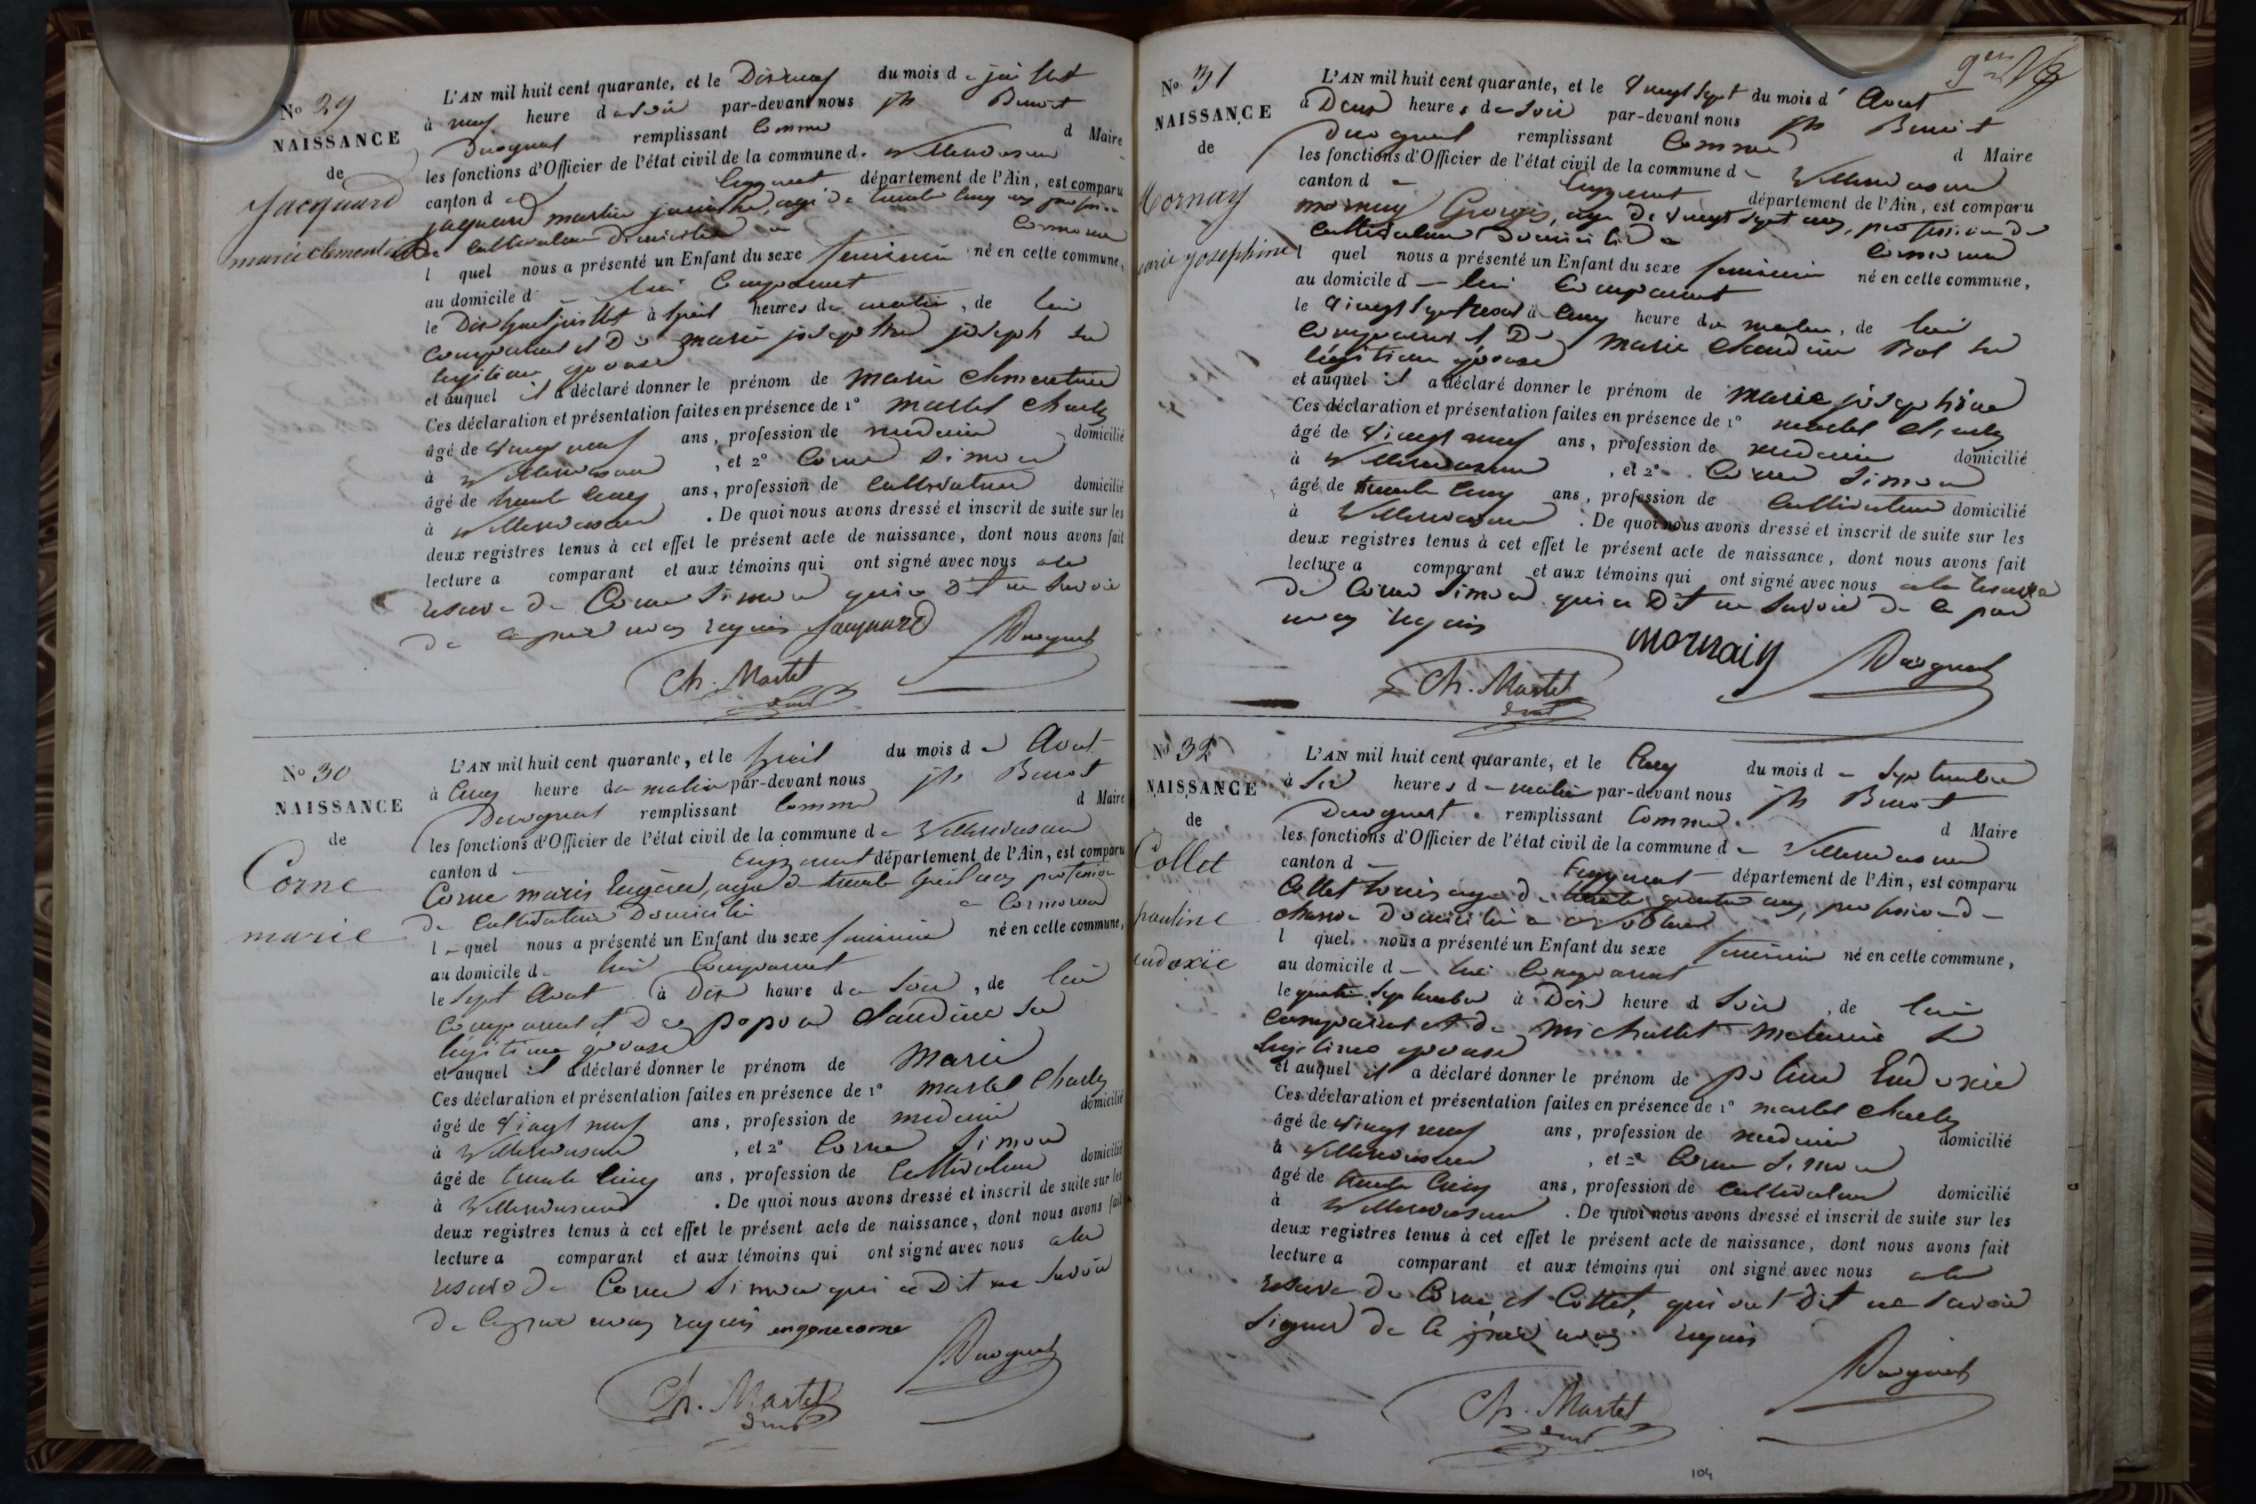 No 29
NAISSANCE
de
Jacquard
marie clementine
L'AN mil huit cent quarante, et le Dix neuf du mois de juillet
à neuf heure du soir par-devant nous jh Benoit
Ducognat remplissant Comme d Maire
les fonctions d'Officier de l'état civil de la commune de Villereversure
canton d Ceyzeriat département de l'Ain, est comparu
jaquard martin , agé de trente cinq ans profession
de Cultivateur Domicilié a Cormorand
l quel nous a présenté un Enfant du sexe feminin né en cette commune,
au domicile d lui Comparant
le Dix huit juillet à huit heures du matin, de lui
Comparant et De marie josephte joseph sa
legitime epouse
et auquel il a déclaré donner le prénom de marie clementine
Ces déclaration et présentation faites en présence de 1º martel Charles
âgé de vingt neuf ans, profession de medecin domicilié
à Villereversure, et 2º Corne Simon
âgé de trente cinq ans, profession de Cultivateur domicilié
à Villereversure. De quoi nous avons dressé et inscrit de suite sur les
deux registres tenus à cet effet le présent acte de naissance, dont nous avons fait
lecture a comparant et aux témoins qui ont signé avec nous a la
reserve de Corne Simon qui a Dit ne Savoir
de ce faire requis Jacquard Ducognat
Ch. Martel
No 30
NAISSANCE
de
Corne
marie
L'AN mil huit cent quarante, et le huit du mois de Aout
à Cinq heure du matin par-devant nous jh Benoit
Ducognat remplissant Comme d Maire
les fonctions d'Officier de l'état civil de la commune de Villereversure
canton d Ceyzeriat département de l'Ain, est comparu
Corne marie Eugène, agé de trente huit ans profession
de Cultivateur Domicilié a Cormorand
l quel nous a présenté un Enfant du sexe feminin né en cette commune,
au domicile de lui Comparant
le Sept Aout à Dix heure du Soir, de lui
Comparant et De popon Claudine Sa
legitime epouse
et auquel il a déclaré donner le prénom de Marie
Ces déclaration et présentation faites en présence de 1º martel Charles
âgé de vingt neuf ans, profession de medecin domicilié
à Villereversure, et 2º Corne Simon
âgé de trente cinq ans, profession de Cultivateur domicilié
à Villereversure. De quoi nous avons dressé et inscrit de suite sur les
deux registres tenus à cet effet le présent acte de naissance, dont nous avons fait
lecture a comparant et aux témoins qui ont signé avec nous a la
reserve de Corne Simon qui a Dit ne Savoir
de ce faire requis Ducognat
Ch. Martel
No 31
NAISSANCE
de
Mornay
marie josephine
L'AN mil huit cent quarante, et le vingt Sept du mois d' Aout
à Deux heures du Soir par-devant nous jh Benoit
Ducognat remplissant Comme d Maire
les fonctions d'Officier de l'état civil de la commune de Villereversure
canton de Ceyzeriat département de l'Ain, est comparu
mornay Georges, age De vingt sept ans, profession de
Cultivateur Domicilié a Cormorand
l quel nous a présenté un Enfant du sexe feminin né en cette commune,
au domicile de lui Comparant
le vingt Sept aout à Cinq heure du matin, de lui
Comparant et De Marie Claudine Sa
légitime épouse
et auquel il a déclaré donner le prénom de Marie josephine
Ces déclaration et présentation faites en présence de 1º martel Charles
âgé de vingt neuf ans, profession de medecin domicilié
à Villereversure, et 2º Corne Simon
âgé de trente cinq ans, profession de Cultivateur domicilié
à Villereversure. De quoi nous avons dressé et inscrit de suite sur les
deux registres tenus à cet effet le présent acte de naissance, dont nous avons fait
lecture a comparant et aux témoins qui ont signé avec nous a la reserve
de Corne Simon qui a Dit ne Savoir de ce faire
requis mornaiy Ducognat
Ch. Martel
No 32
NAISSANCE
de
Collet
pauline
eudoxie
L'AN mil huit cent quarante, et le Cinq du mois de Septembre
à Six heures de matin par-devant nous jh Benoit
Ducognat remplissant Comme d Maire
les fonctions d'Officier de l'état civil de la commune de Villereversure
canton de Ceyzeriat département de l'Ain, est comparu
Collet Louis agé de trente quatre ans, profession de
Domicilié a
l quel nous a présenté un Enfant du sexe feminin né en cette commune,
au domicile de lui Comparant
le quatre Septembre à Dix heure d Soir, de lui
Comparant et de Michallet Melanie Sa
legitime epouse
et auquel il a déclaré donner le prénom de poline Eudoxie
Ces déclaration et présentation faites en présence de 1º martel Charles
âgé de vingt neuf ans, profession de medecin domicilié
à Villereversure, et 2º Corne Simon
âgé de trente Cinq ans, profession de Cultivateur domicilié
à Villereversure. De quoi nous avons dressé et inscrit de suite sur les
deux registres tenus à cet effet le présent acte de naissance, dont nous avons fait
lecture a comparant et aux témoins qui ont signé avec nous a la
reserve de Corne et Collet, qui ont Dit ne Savoir
Signer de ce faire requis
Ducognat
Ch. Martel
104